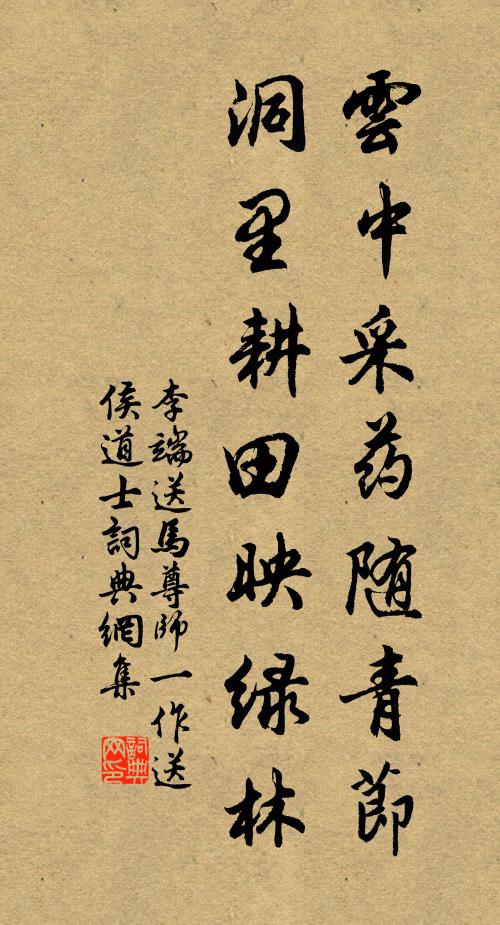 雲中采药随青節
洞里耕田映绿林
李端送馬尊師一作送
侯道士詞典網集
詞典
网印